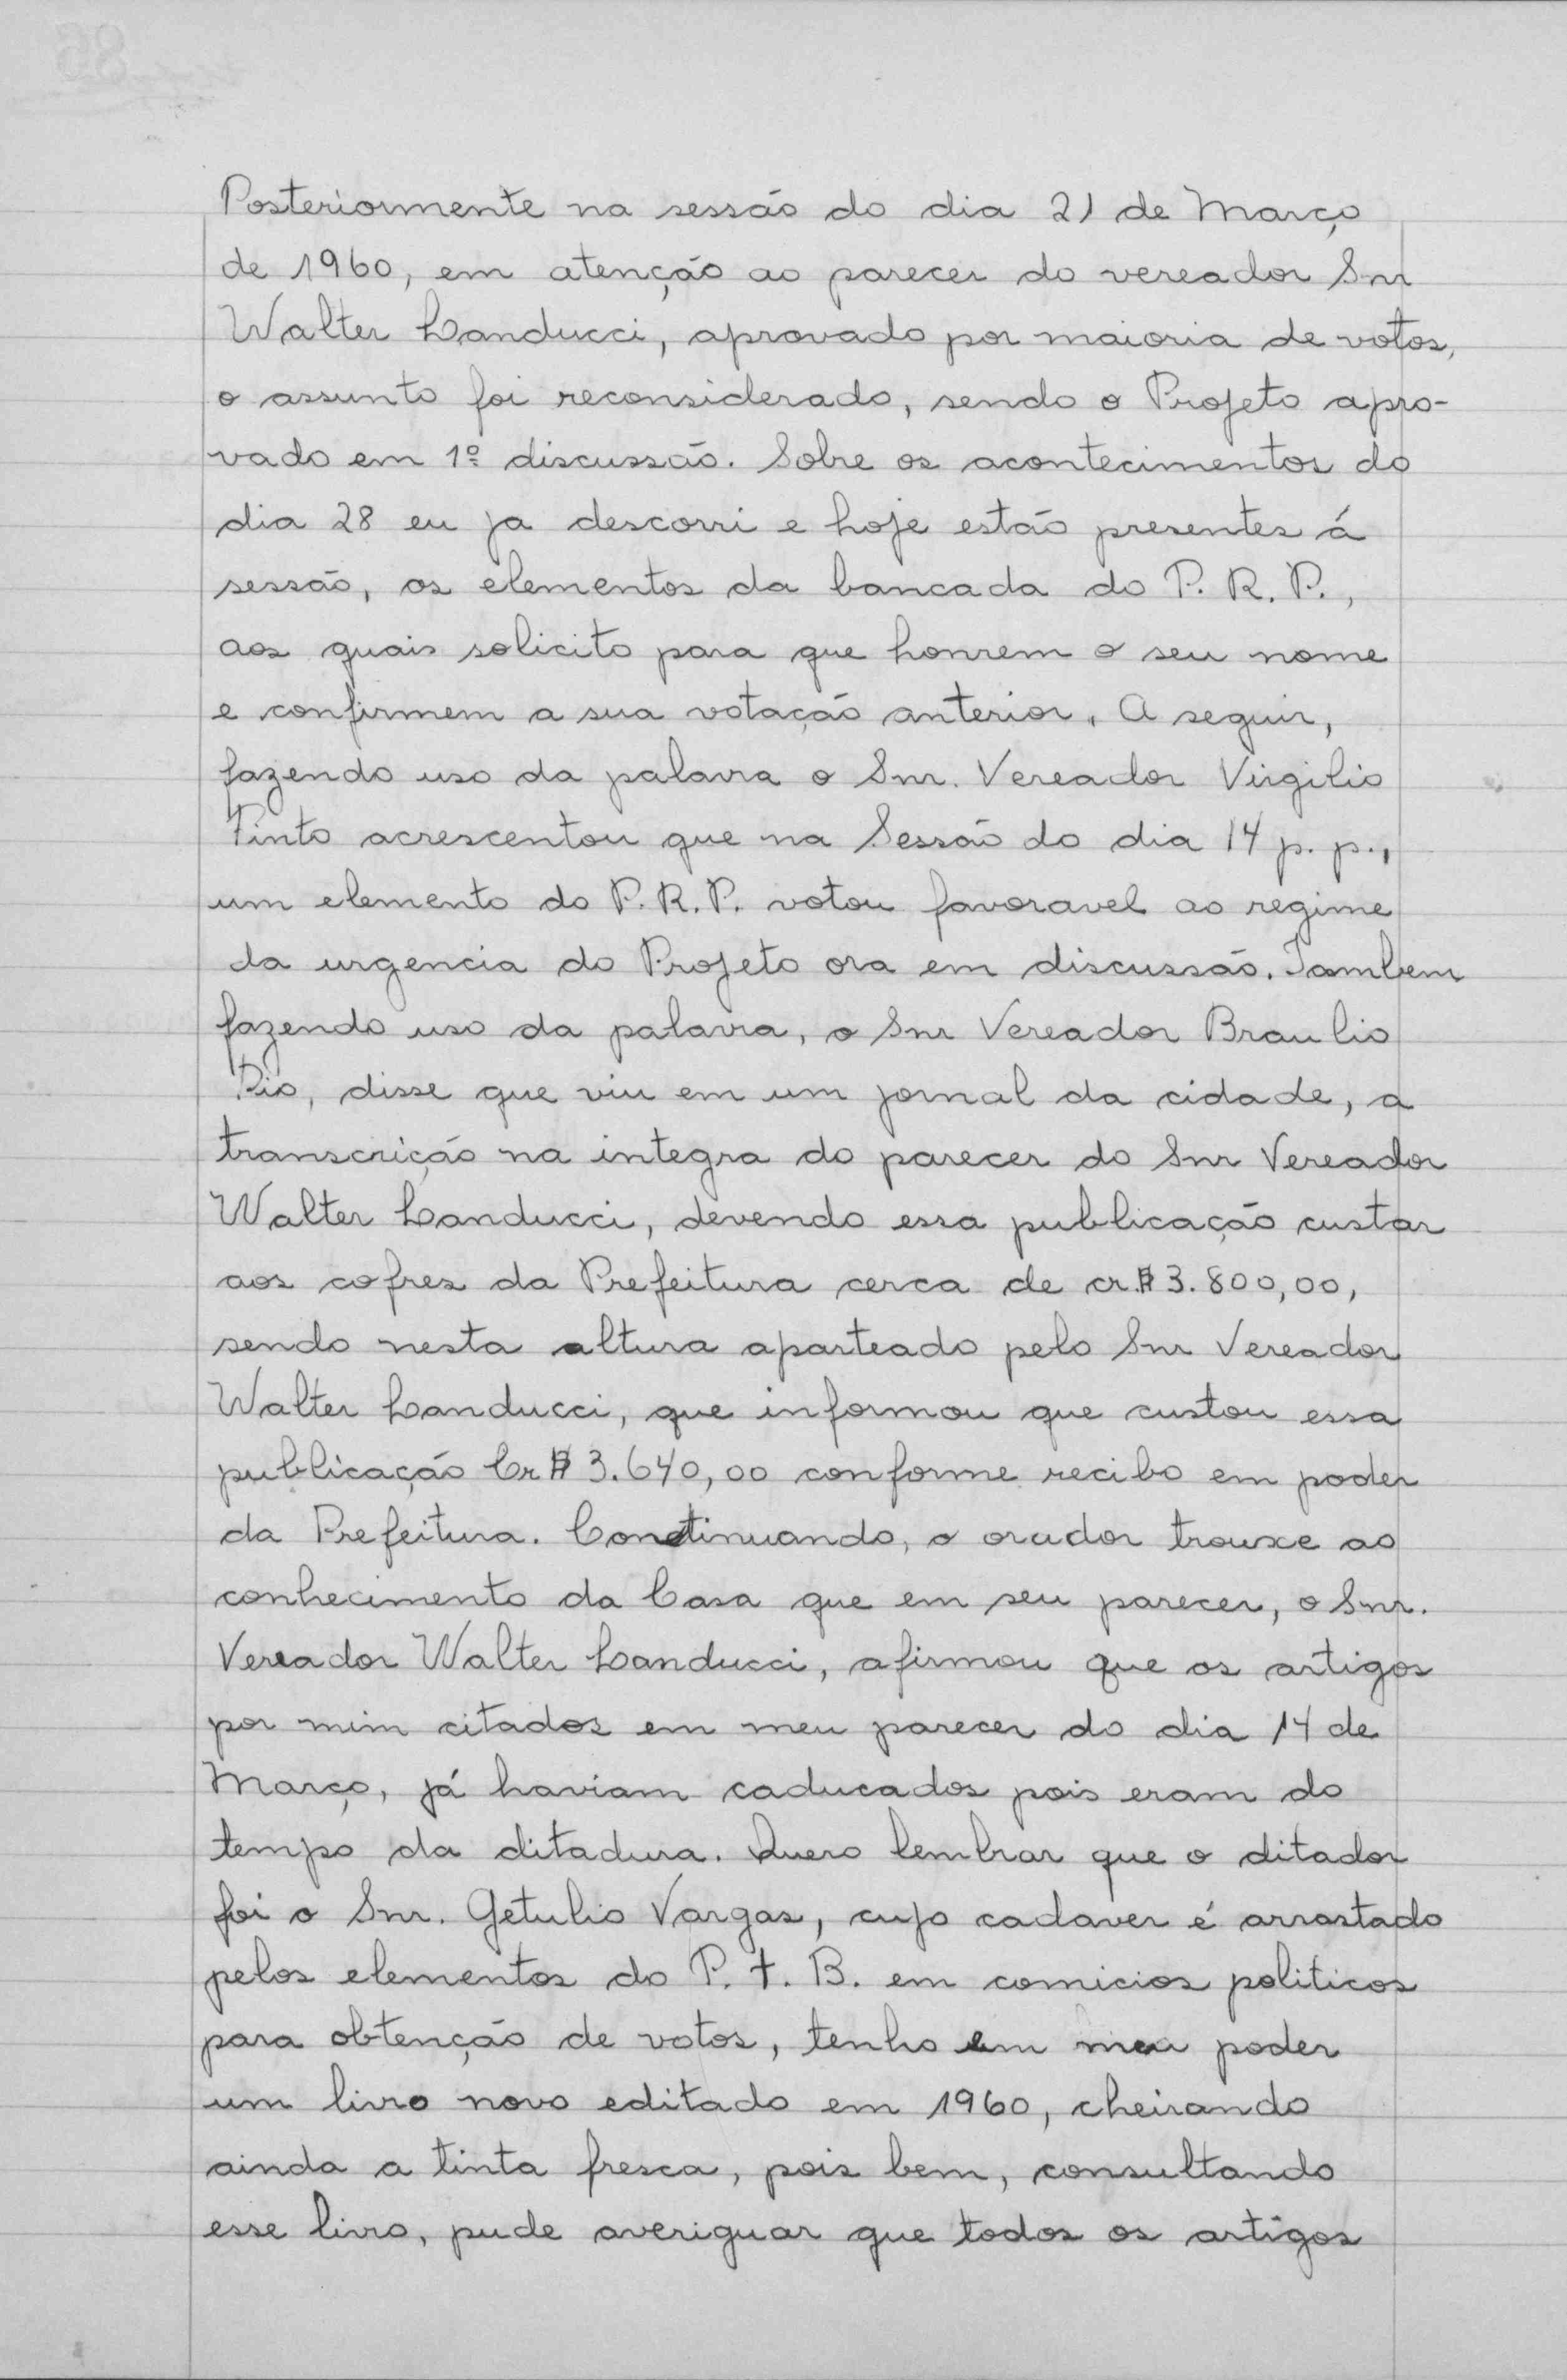 Posteriormente na sessão do dia 21 de Março
de 1960, em atenção ao parecer do vereador Snr
Walter Landucci, aprovado por maioria de votos,
o assunto foi reconsiderado, sendo o Projeto apro-
vado em 1º discussão. Sobre os acontecimentos do
dia 28 eu ja descorri e hoje estão presentes á
sessão, os elementos da bancada do P. R. P.,
aos quais solicito para que honrem o seu nome
e confirmem a sua votação anterior. A seguir,
fazendo uso da palavra o Snr. Vereador Virgilio
Pinto acrescentou que na Sessão do dia 14 p. p.,
um elemento do P. R. P. votou favoravel ao regime
da urgencia do Projeto ora em discussão. Tambem
fazendo uso da palavra, o Snr Vereador Braulio
Pio, disse que viu em um jornal da cidade, a
transcrição na integra do parecer do Snr Vereador
Walter Landucci, devendo essa publicação custar
aos cofres da Prefeitura cerca de cr.$ 3.800,00,
sendo nesta altura aparteado pelo Snr Vereador
Walter Landucci, que informou que custou essa
publicação Cr$ 3.640,00 conforme recibo em poder
da Prefeitura. Continuando, o orador trouxe ao
conhecimento da Casa que em seu parecer, o Snr.
Vereador Walter Landucci, afirmou que os artigos
por mim citados em meu parecer do dia 14 de
Março, já haviam caducados pois eram do
tempo da ditadura. Quero lembrar que o ditador
foi o Snr. Getulio Vargas, cujo cadaver é arrastado
pelos elementos do P. T. B. em comicios politicos
para obtenção de votos, tenho em meu poder
um livro novo editado em 1960, cheirando
ainda a tinta fresca, pois bem, consultando
esse livro, pude averiguar que todos os artigos